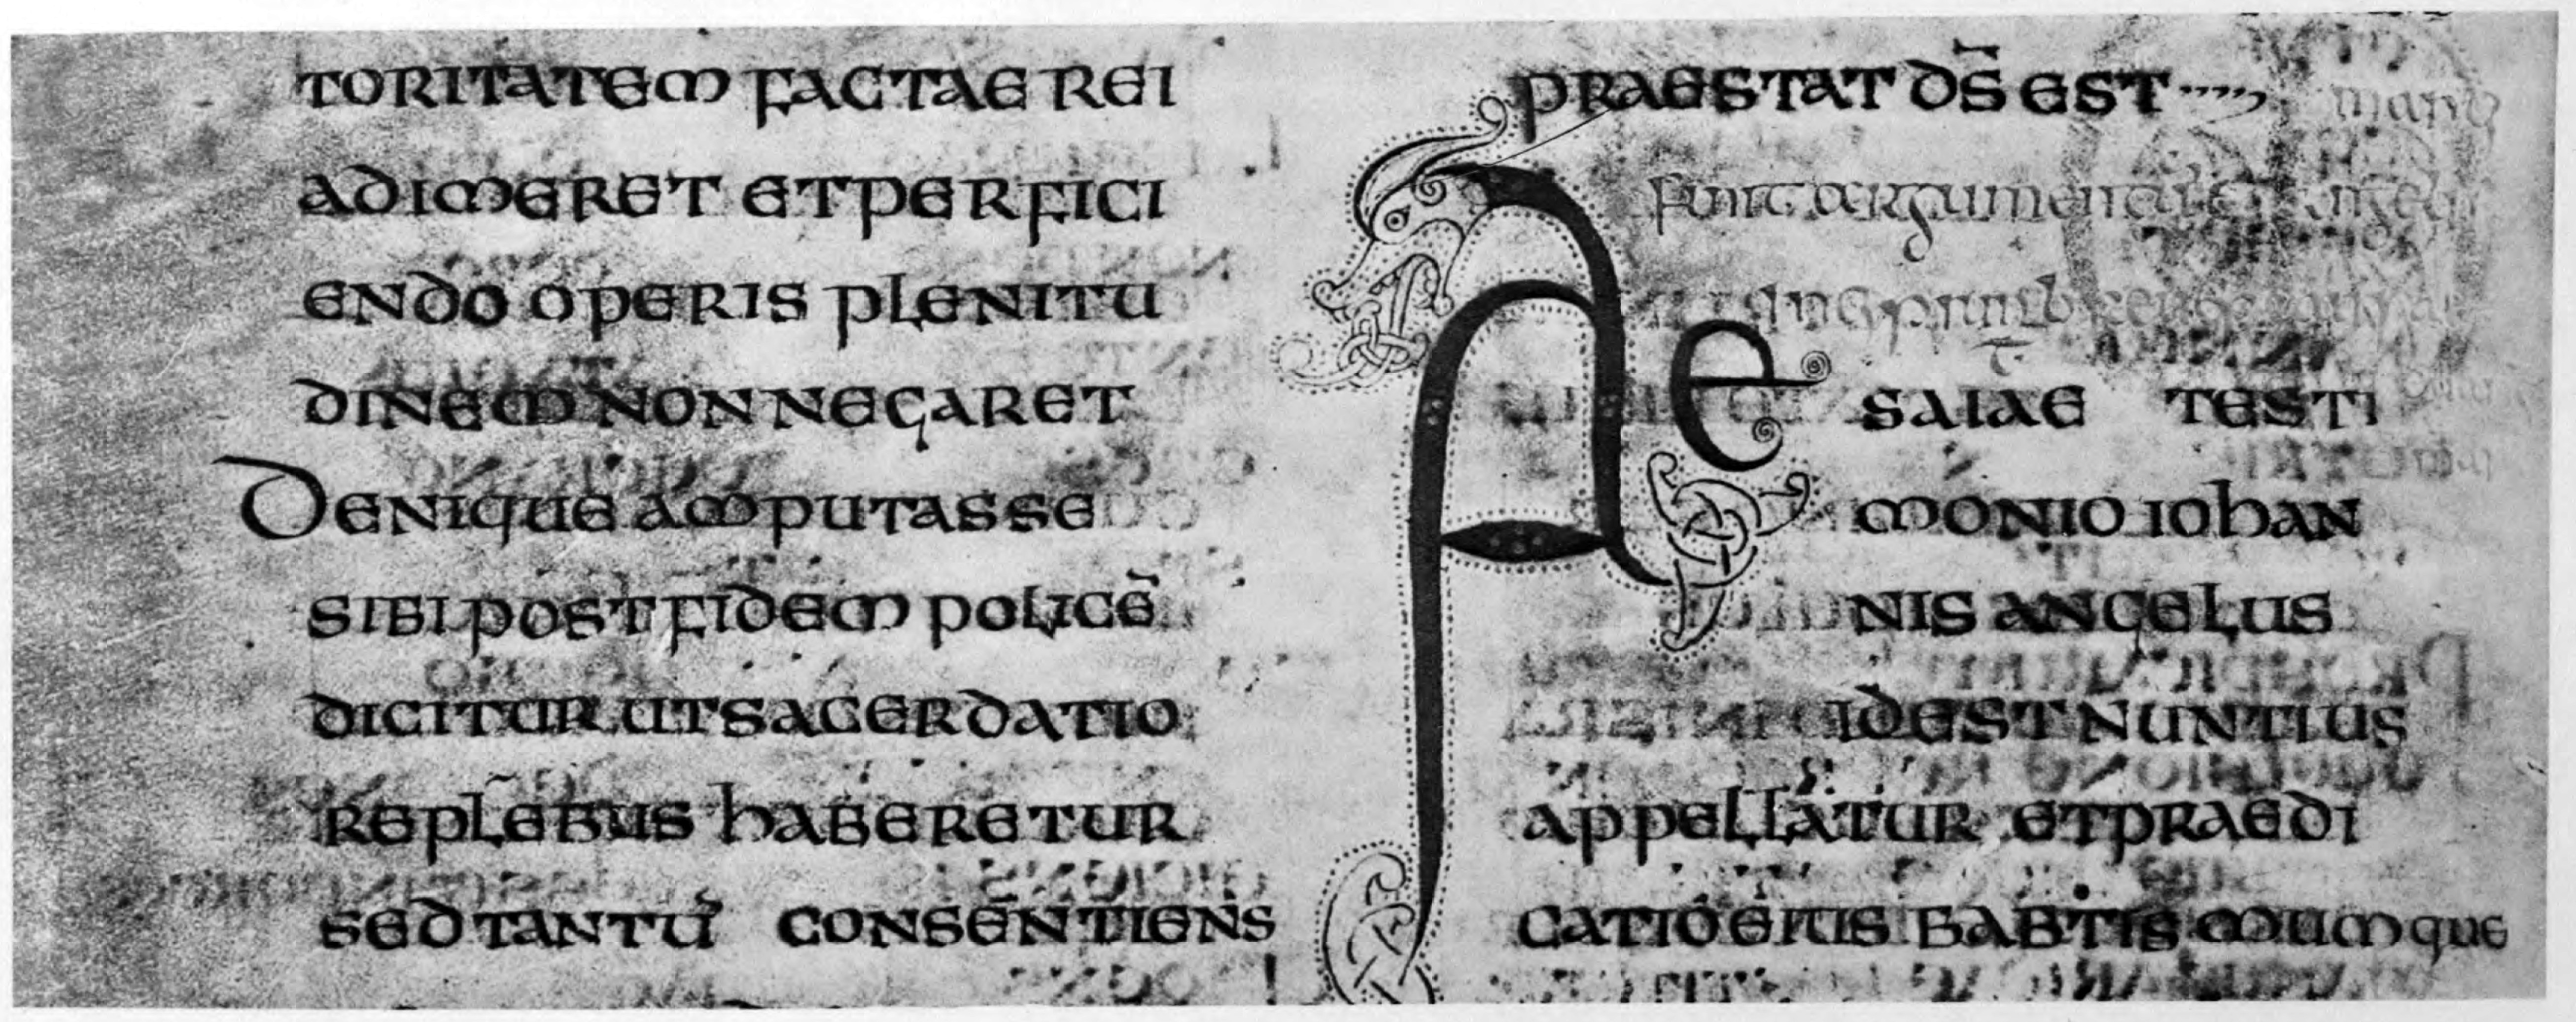 TORITATEM FACTAE REI
ADIMERET ETPERFICI
ENDO OPERIS PLENITU
DINEM NON NEGARET
DENIQUE AMPUTASSE
SIBI POST FIDEM POLICĒ
DICITUR UT SACERDATIO
REPLEBUS HABERETUR
SED TANTŪ CONSENTIENS
PRAESTAT DS̄ EST
AE
SAIAE TESTI
MONIO IOHAN
NIS ANGELUS
IDEST NUNTIUS
APPELLATUR ET PRAEDI
CATIO EIUS BABTISMUMQUE